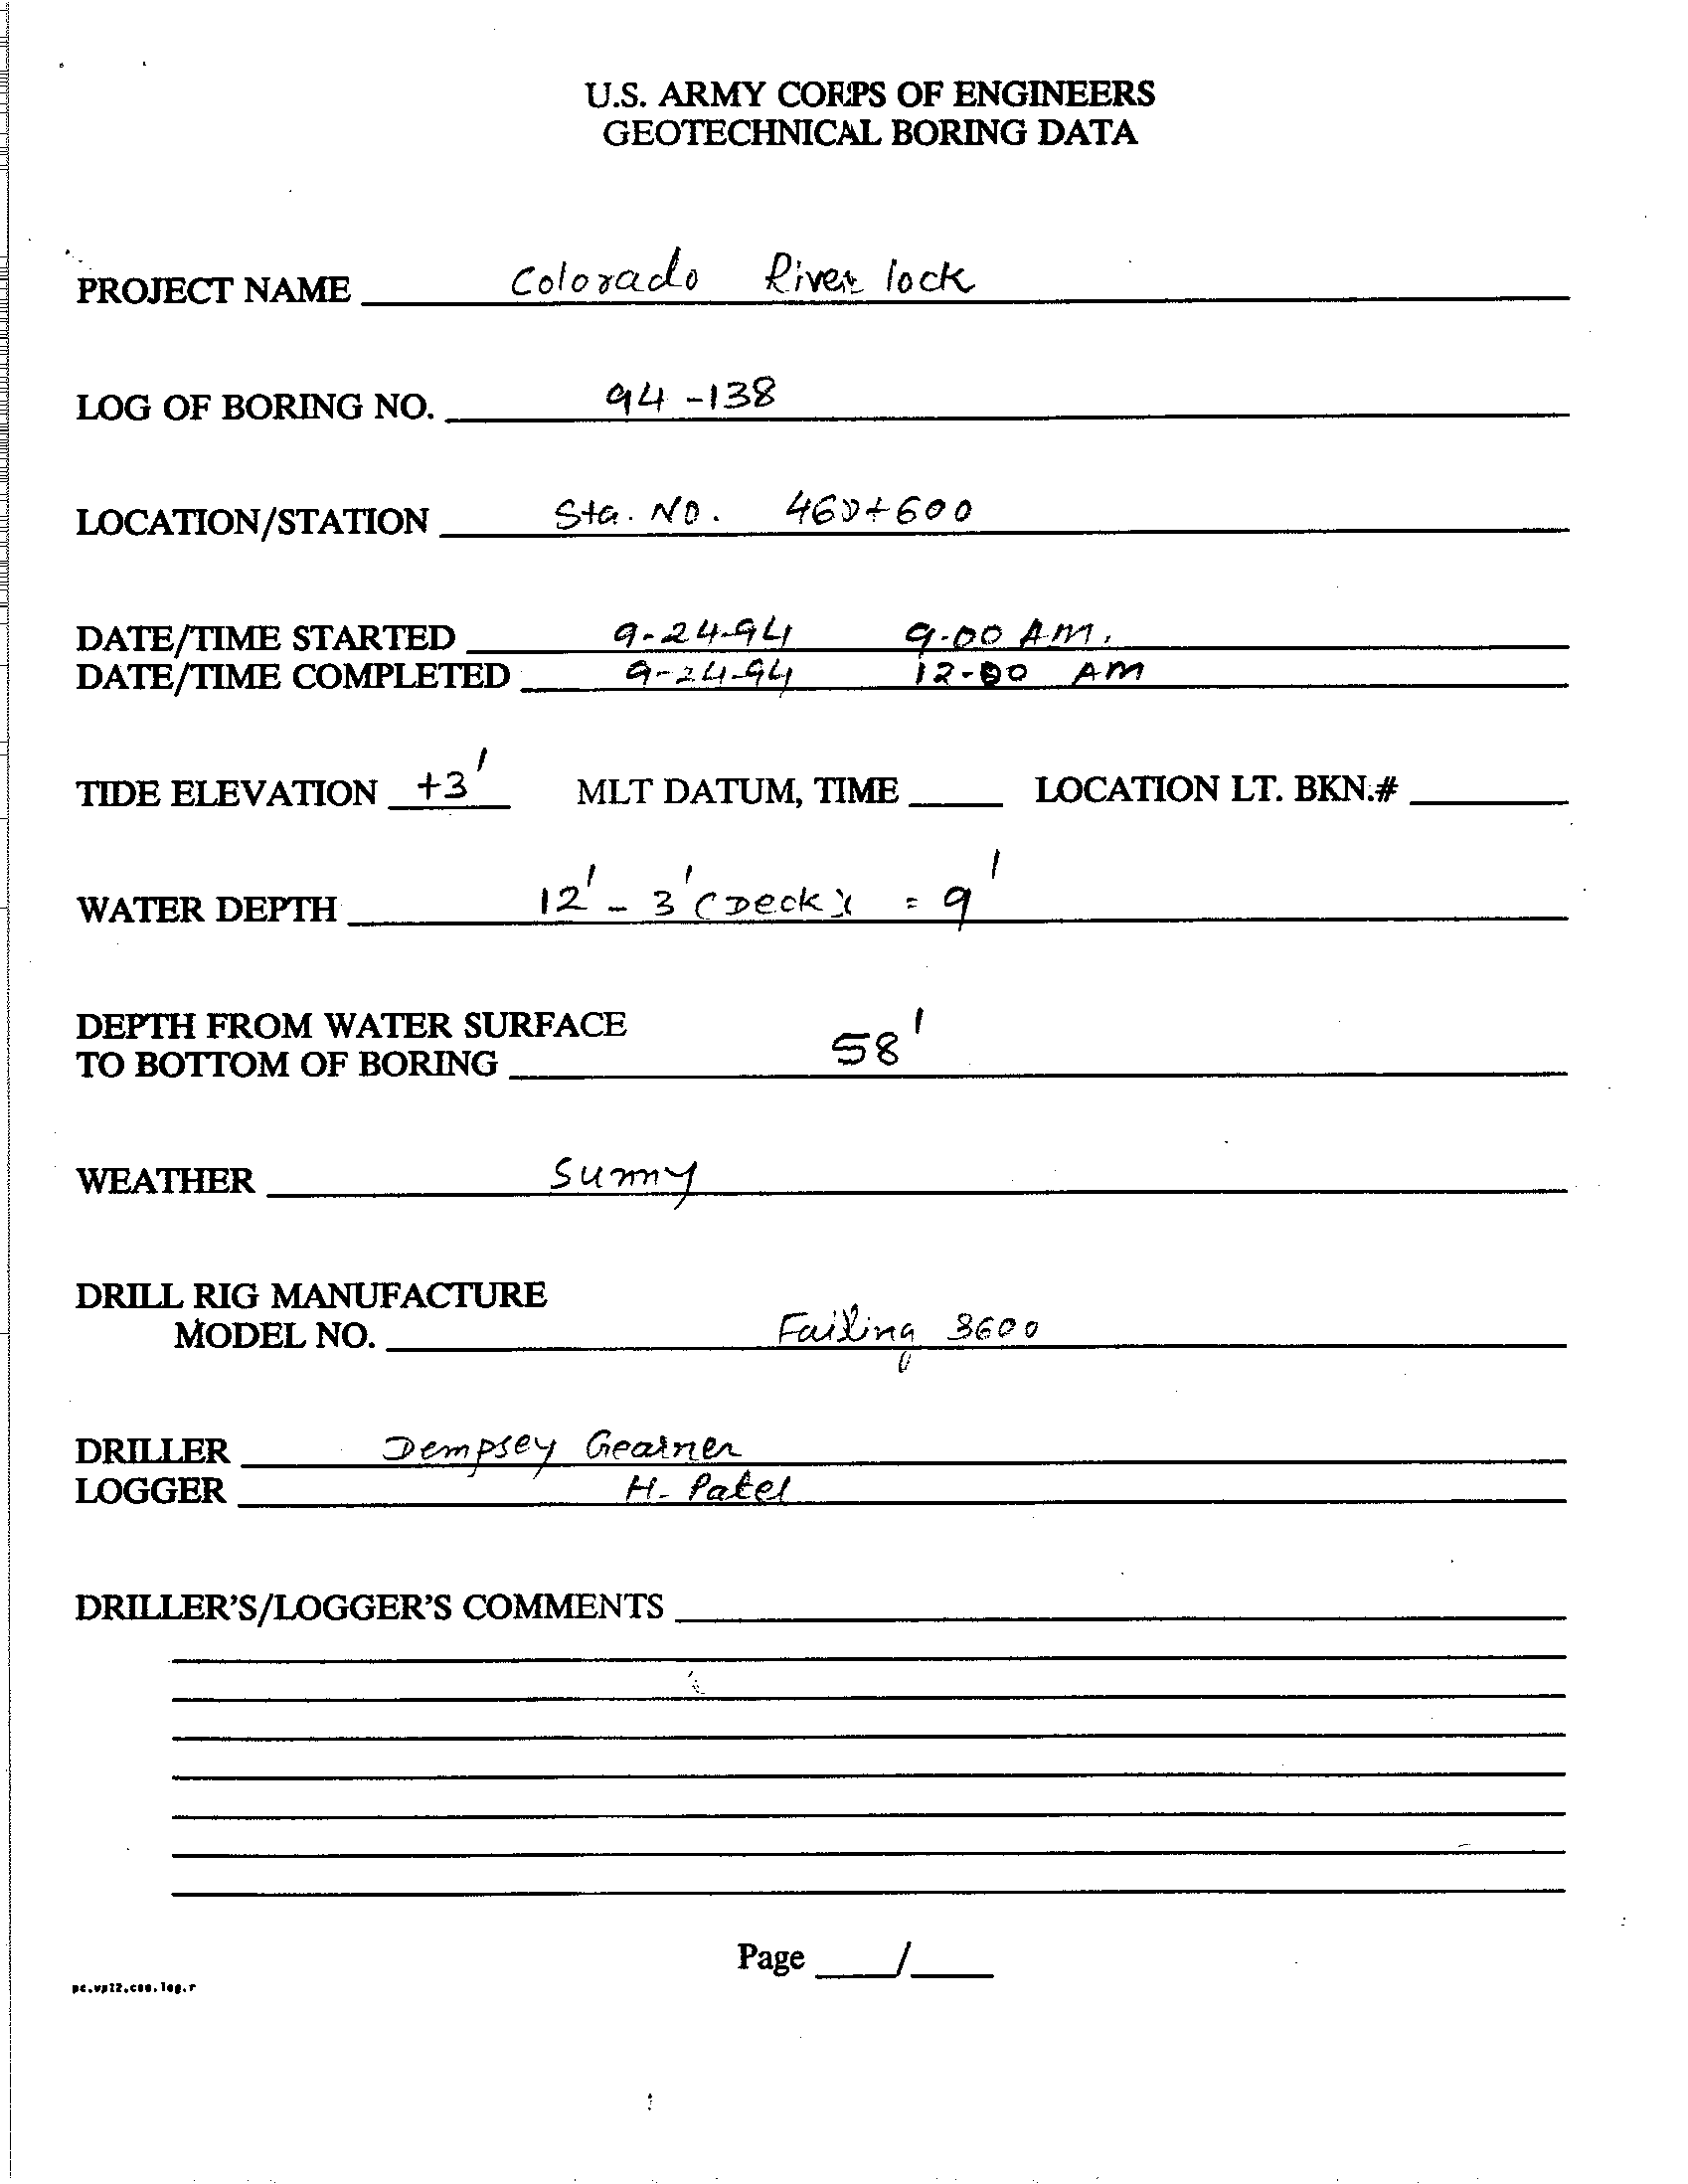 U.S. ARMY CORPS OF ENGINEERS
GEOTECHNICAL BORING DATA
PROJECT NAME Colorado River lock
LOG OF BORING NO. 94-138
LOCATION/STATION Sta. No. 460+600
DATE/TIME STARTED 9-24-94 9-00 AM.
DATE/TIME COMPLETED 9-24-94 12-00 AM
TIDE ELEVATION +3' MLT DATUM, TIME LOCATION LT. BKN.#
WATER DEPTH 12' - 3' (Deck) = 9'
DEPTH FROM WATER SURFACE
TO BOTTOM OF BORING 58'
WEATHER Sunny
DRILL RIG MANUFACTURE
MODEL NO. Failing 3600
DRILLER Dempsey Gearner
LOGGER H. Patel
DRILLER'S/LOGGER'S COMMENTS
Page /